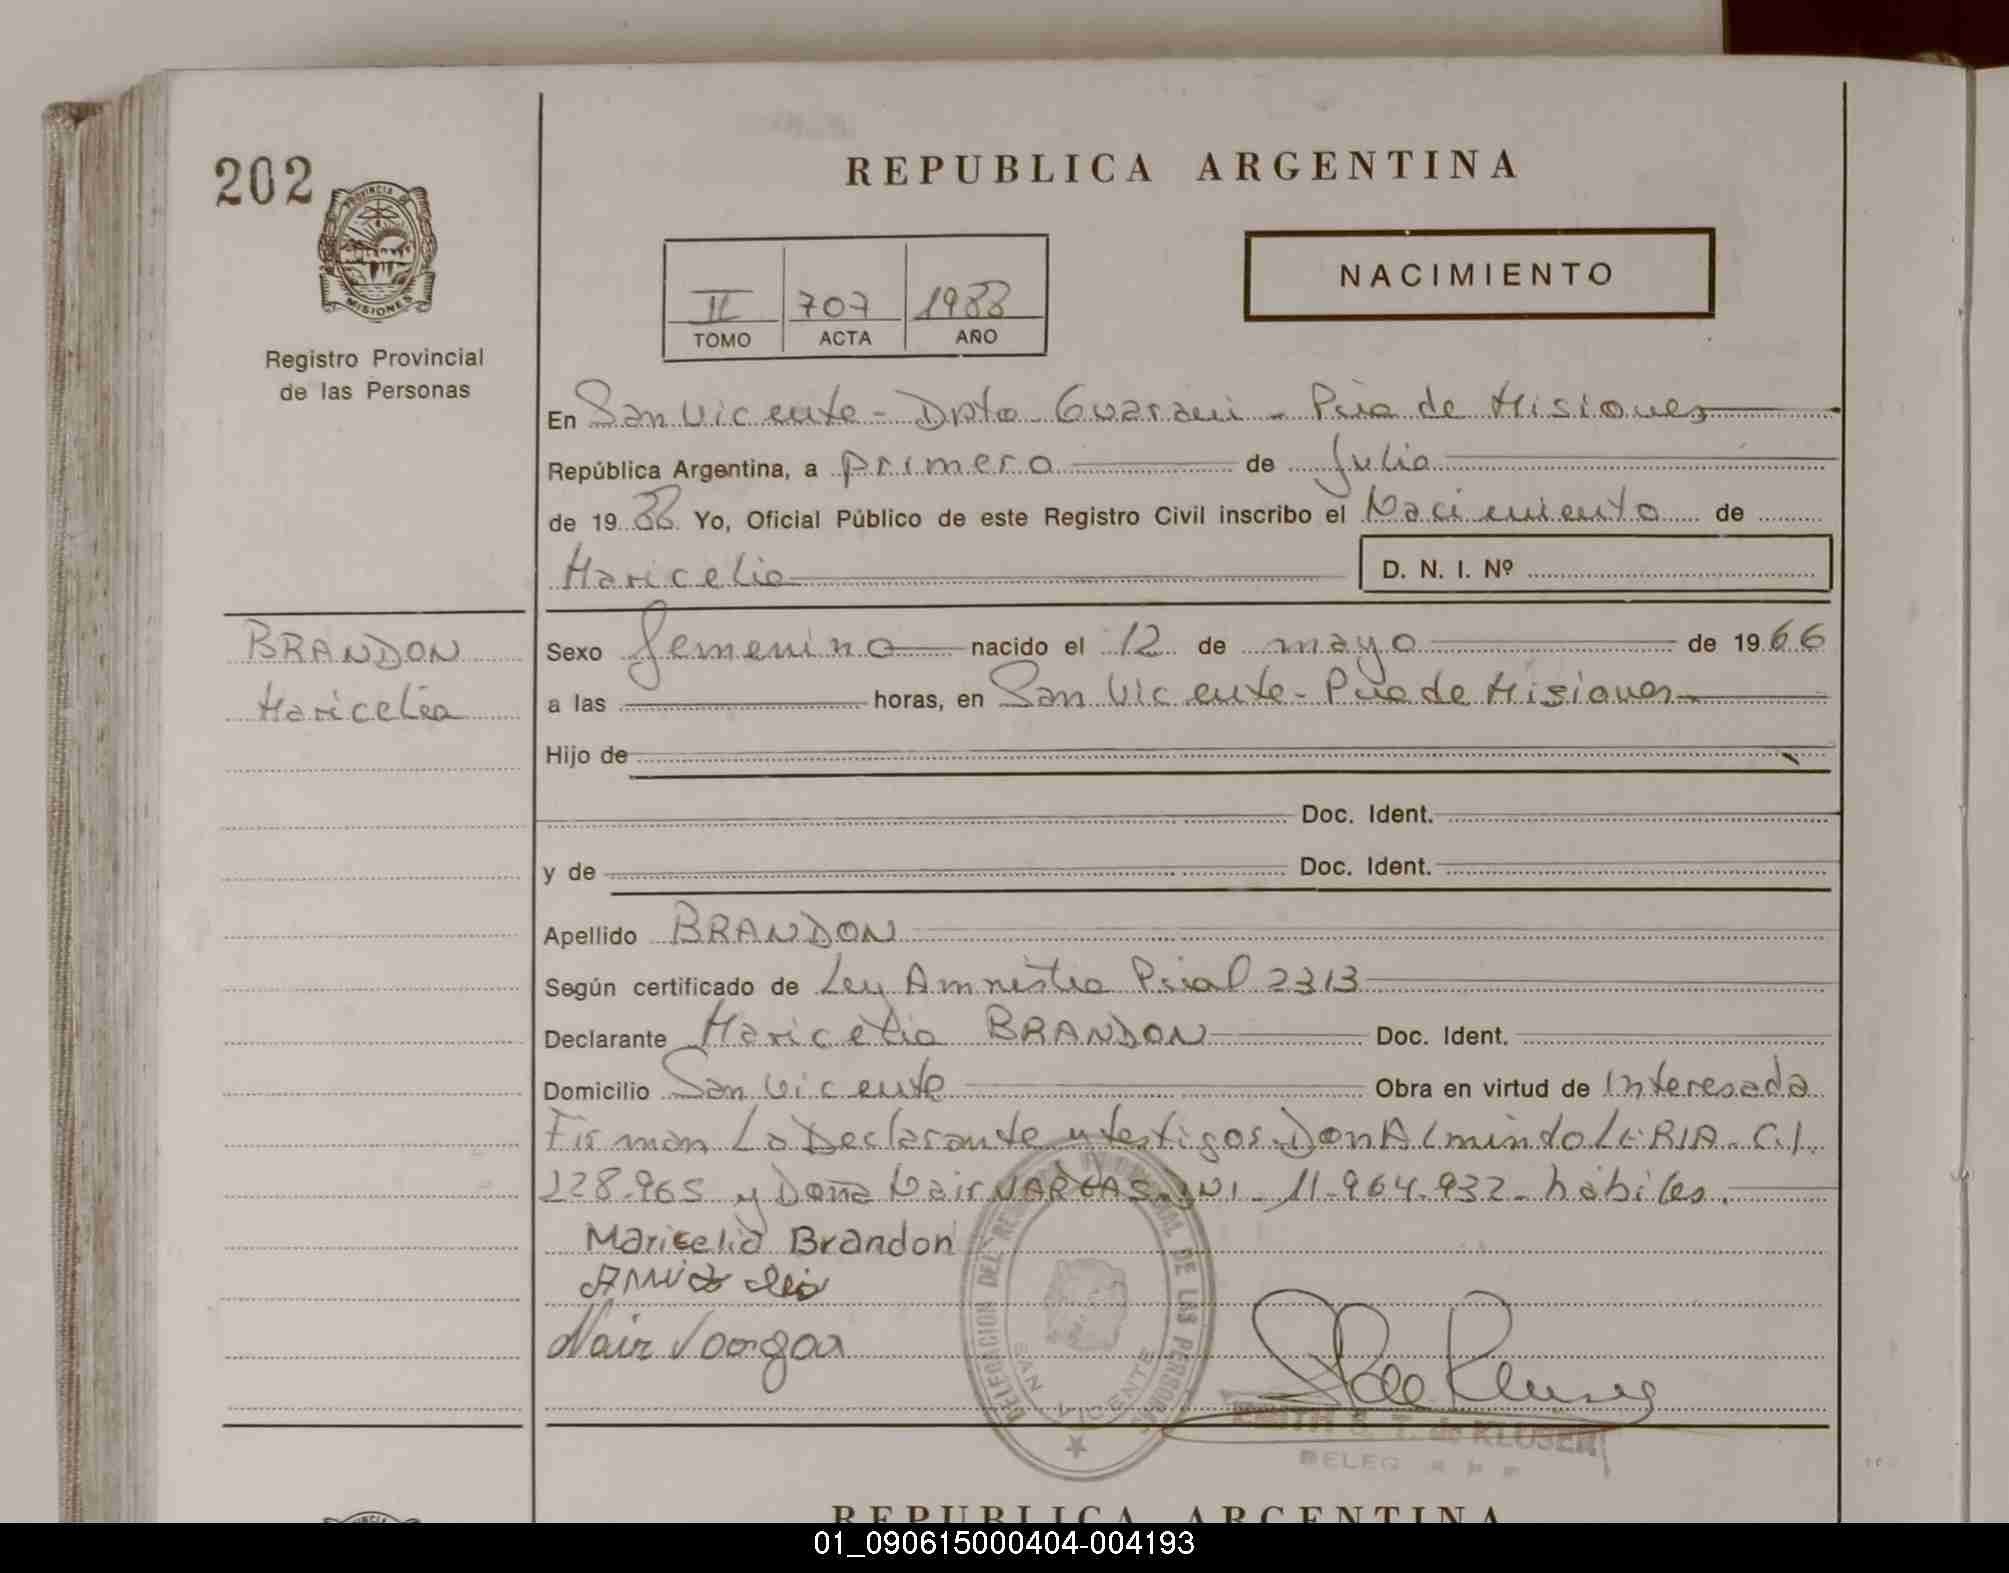 202
PROVINCIA
MISIONES
Registro Provincial
de las Personas
REPUBLICA ARGENTINA
NACIMIENTO
II 707 1988
TOMO ACTA AÑO
En San Vicente - Dpto Guarani - Pcia de Misiones
República Argentina, a primero de Julio
de 1988 Yo, Oficial Público de este Registro Civil inscribo el Nacimiento de
Maricelia D. N. I. Nº
BRANDON
Maricelia
Sexo femenino nacido el 12 de mayo de 1966
a las horas, en San Vicente - Pcia de Misiones
Hijo de
Doc. Ident.
y de Doc. Ident.
Apellido BRANDON
Según certificado de Ley Amnistia Pcial 2313
Declarante Maricelia BRANDON Doc. Ident.
Domicilio San Vicente Obra en virtud de Interesada
Firman La Declarante y testigos - Don Almindo LERIA - C.I.
228.965 y Doña Nair VARGAS - DNI - 11.964.932 - hábiles.
Maricelia Brandon
Nair Vargas
DELEGACION DEL REGISTRO PROVINCIAL DE LAS PERSONAS
SAN VICENTE
EDITH S. T. de KLUSENER
REPUBLICA ARGENTINA
01_090615000404-004193